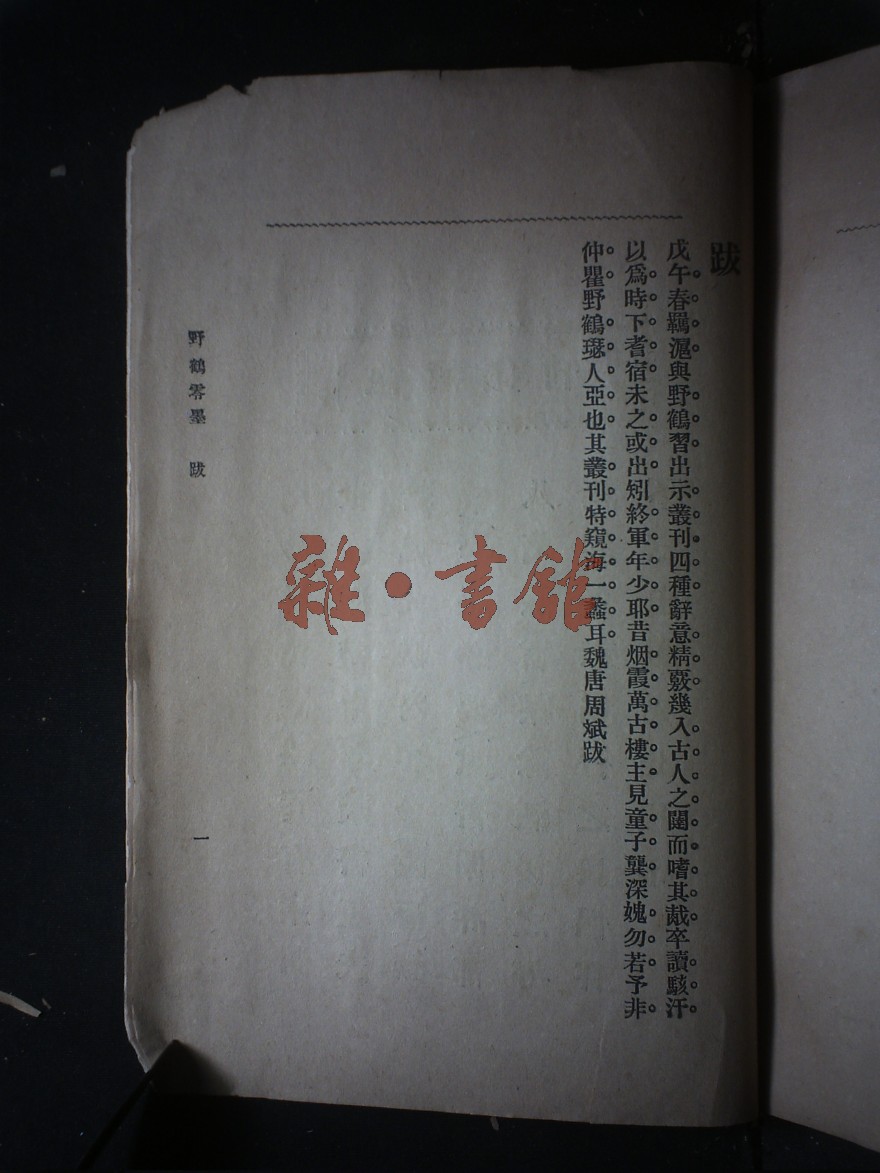 跋
戊午春羈滬與野鶴習出示叢刊四種辭意精覈幾入古人之闥而嗜其胾卒讀駭汗
以爲時下耆宿未之或出矧終軍年少耶昔烟霞萬古樓主見童子龔深媿勿若予非
仲瞿野鶴瑟人亞也其叢刊特窺海一蠡耳魏唐周斌跋
野鶴零墨 跋
一
雜·書館